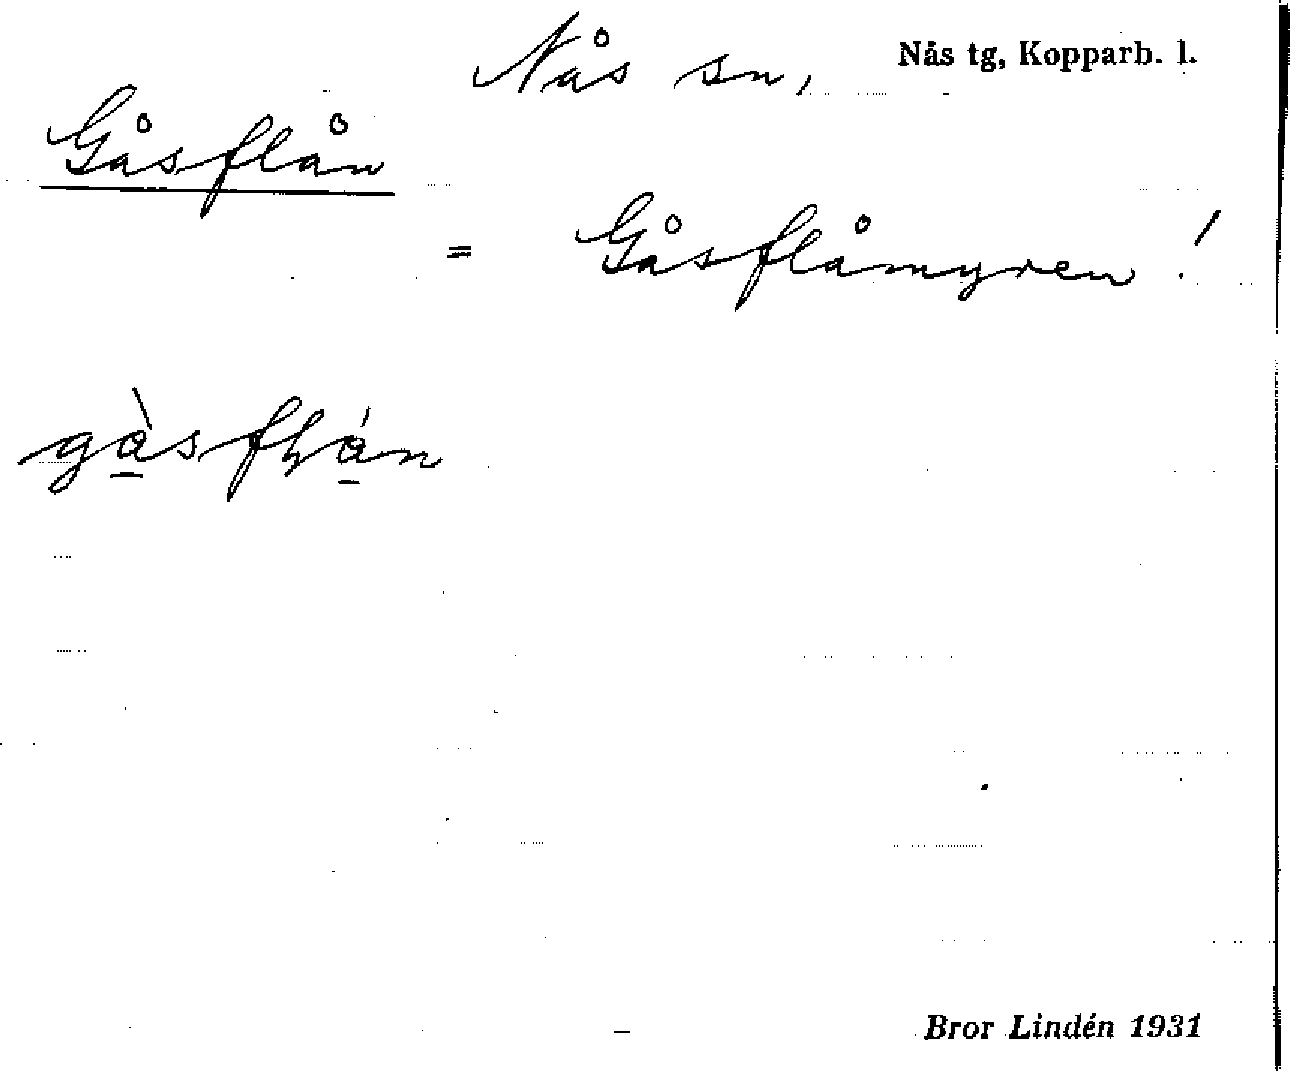 Nås sn, Nås tg, Kopparb. l.
Gåsflån
= Gåsflåmyren!
Bror Lindén 1931